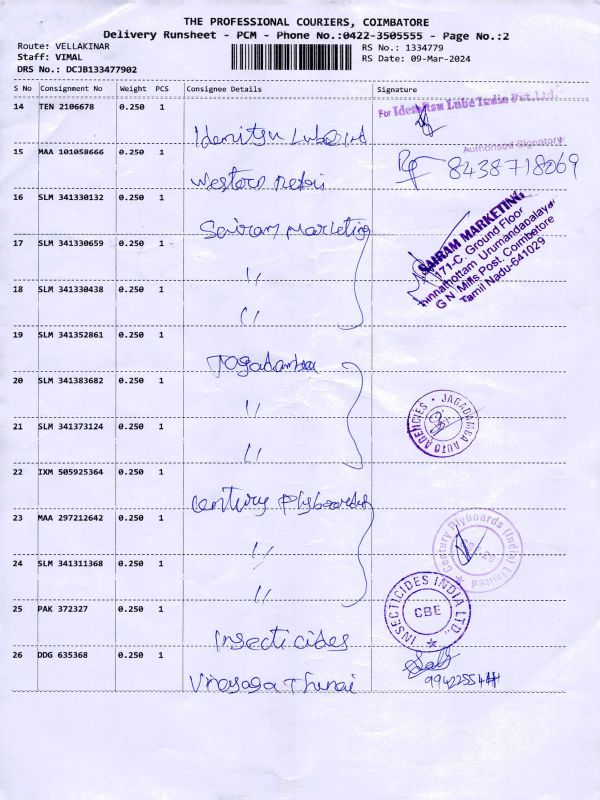 THE PROFESSIONAL COURIERS, COIMBATORE
Delivery Runsheet - PCM - Phone No.:0422-3505555 - Page No.:2
Route: VELLAKINAR
Staff: VIMAL
DRS No.: DCJB133477902
RS No.: 1334779
RS Date: 09-Mar-2024
S No Consignment No Weight PCS Consignee Details Signature
14 TEN 2106678 0.250 1 Idemitsu Lube Ltd
For Idemitsu Lube India Pvt. Ltd.
Authorised Signatory
15 MAA 101058666 0.250 1 Western
8438718069
16 SLM 341330132 0.250 1 Sairam Marketing
17 SLM 341330659 0.250 1 "
18 SLM 341330438 0.250 1 "
SAIRAM MARKETING
171-C, Ground Floor
Urumandapalayam
G N Mills Post, Coimbatore
Tamil Nadu-641029
19 SLM 341352861 0.250 1 Jagadamba
20 SLM 341383682 0.250 1 "
21 SLM 341373124 0.250 1 "
JAGADAMBA AUTO AGENCIES
22 IXM 505925364 0.250 1 Century Plyboards
23 MAA 297212642 0.250 1 "
24 SLM 341311368 0.250 1 "
Century Plyboards (India) Limited
25 PAK 372327 0.250 1 Insecticides
INSECTICIDES INDIA LTD.,
CBE
26 DDG 635368 0.250 1 Vinayaga